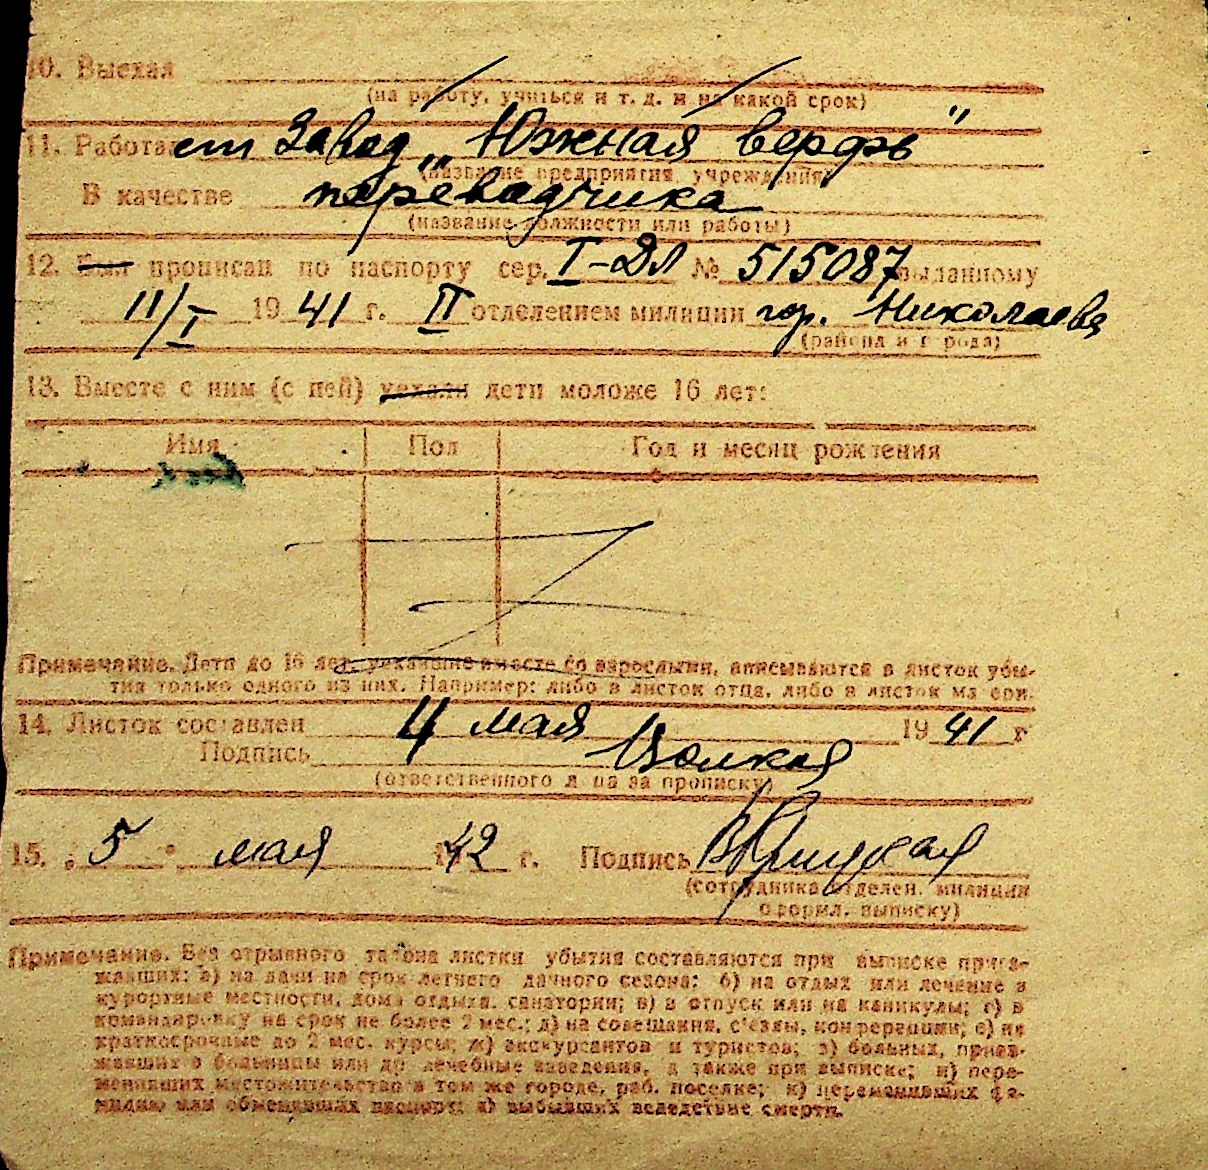 10. Выехал
(на работу, учиться и т. д. и на какой срок)
11. Работает Завод „Южная верфь"
(название предприятия, учреждения)
В качестве переводчика
(название должности или работы)
12. Был прописан по паспорту сер. I-ДЛ № 515087 выданному
11/I 1941 г. II отделением милиции гор. Николаева
(района и города)
13. Вместе с ним (с ней) уехали дети моложе 16 лет:
Имя Пол Год и месяц рождения
Примечание. Дети до 16 лет, уехавшие вместе со взрослыми, вписываются в листок убы-
тия только одного из них. Например: либо в листок отца, либо в листок матери.
14. Листок составлен 4 мая 1941 г
Подпись
(ответственного лица за прописку)
15. „5" мая 1942 г. Подпись
(сотрудника отделен. милиции
оформл. выписку)
Примечание. Без отрывного талона листки убытия составляются при выписке приез-
жавших: а) на дачи на срок летнего дачного сезона; б) на отдых или лечение в
курортные местности, дома отдыха, санатории; в) в отпуск или на каникулы; г) в
командировку на срок не более 2 мес.; д) на совещания, съезды, конференции; е) на
краткосрочные до 2 мес. курсы; ж) экскурсантов и туристов; з) больных, приез-
жавших в больницы или др. лечебные заведения, а также при выписке; и) пере-
менивших местожительство в том же городе, раб. поселке; к) переменивших фа-
милию или обменявших паспорт; л) выбывших вследствие смерти.